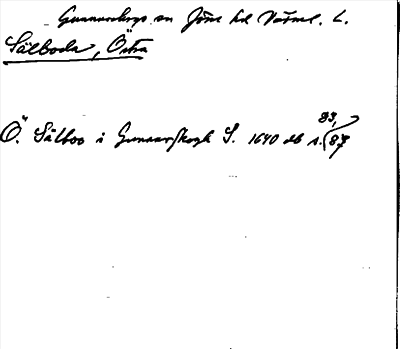 Gunnarskogs sn Jösse hd Värml. L.
Sälboda, Östra
Ö. Sälboo i Gunnarskogh S. 1640 db s. 83, 87